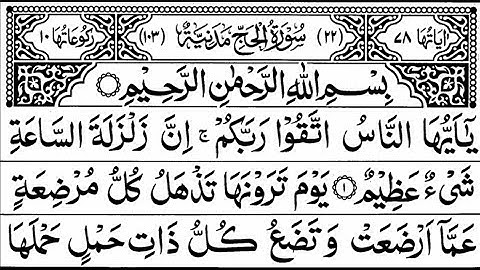 اٰيَاتُهَا ٧٨ (٢٢) سُوْرَةُ الْحَجِّ مَدَنِيَّةٌ (١٠٣) رُكُوْعَاتُهَا ١٠
بِسْمِ اللهِ الرَّحْمٰنِ الرَّحِيْمِ
يٰۤاَيُّهَا النَّاسُ اتَّقُوْا رَبَّكُمْ ۚ اِنَّ زَلْزَلَةَ السَّاعَةِ
شَيْءٌ عَظِيْمٌ ١ يَوْمَ تَرَوْنَهَا تَذْهَلُ كُلُّ مُرْضِعَةٍ
عَمَّاۤ اَرْضَعَتْ وَتَضَعُ كُلُّ ذَاتِ حَمْلٍ حَمْلَهَا